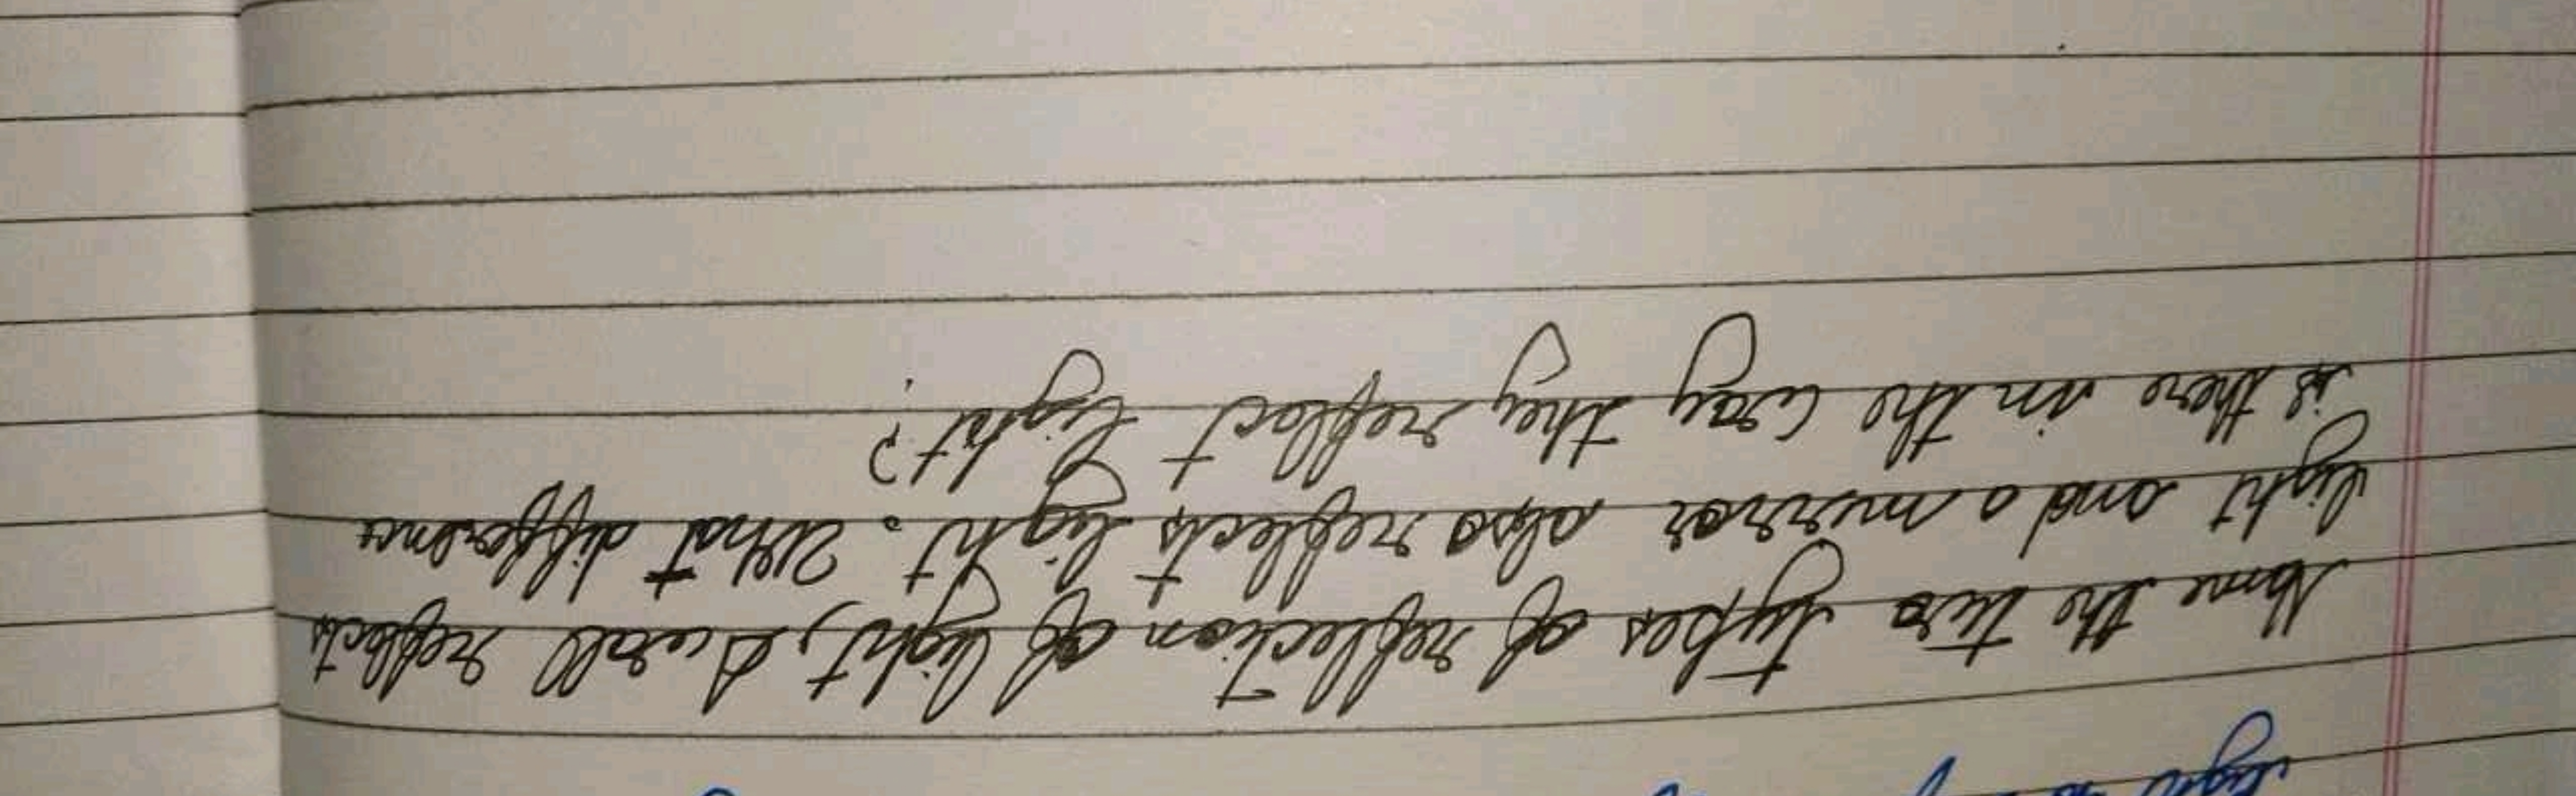 light
Name the two types of reflection of light, A wall reflects
light and a mirror also reflects light. What difference
is there in the way they reflect light?